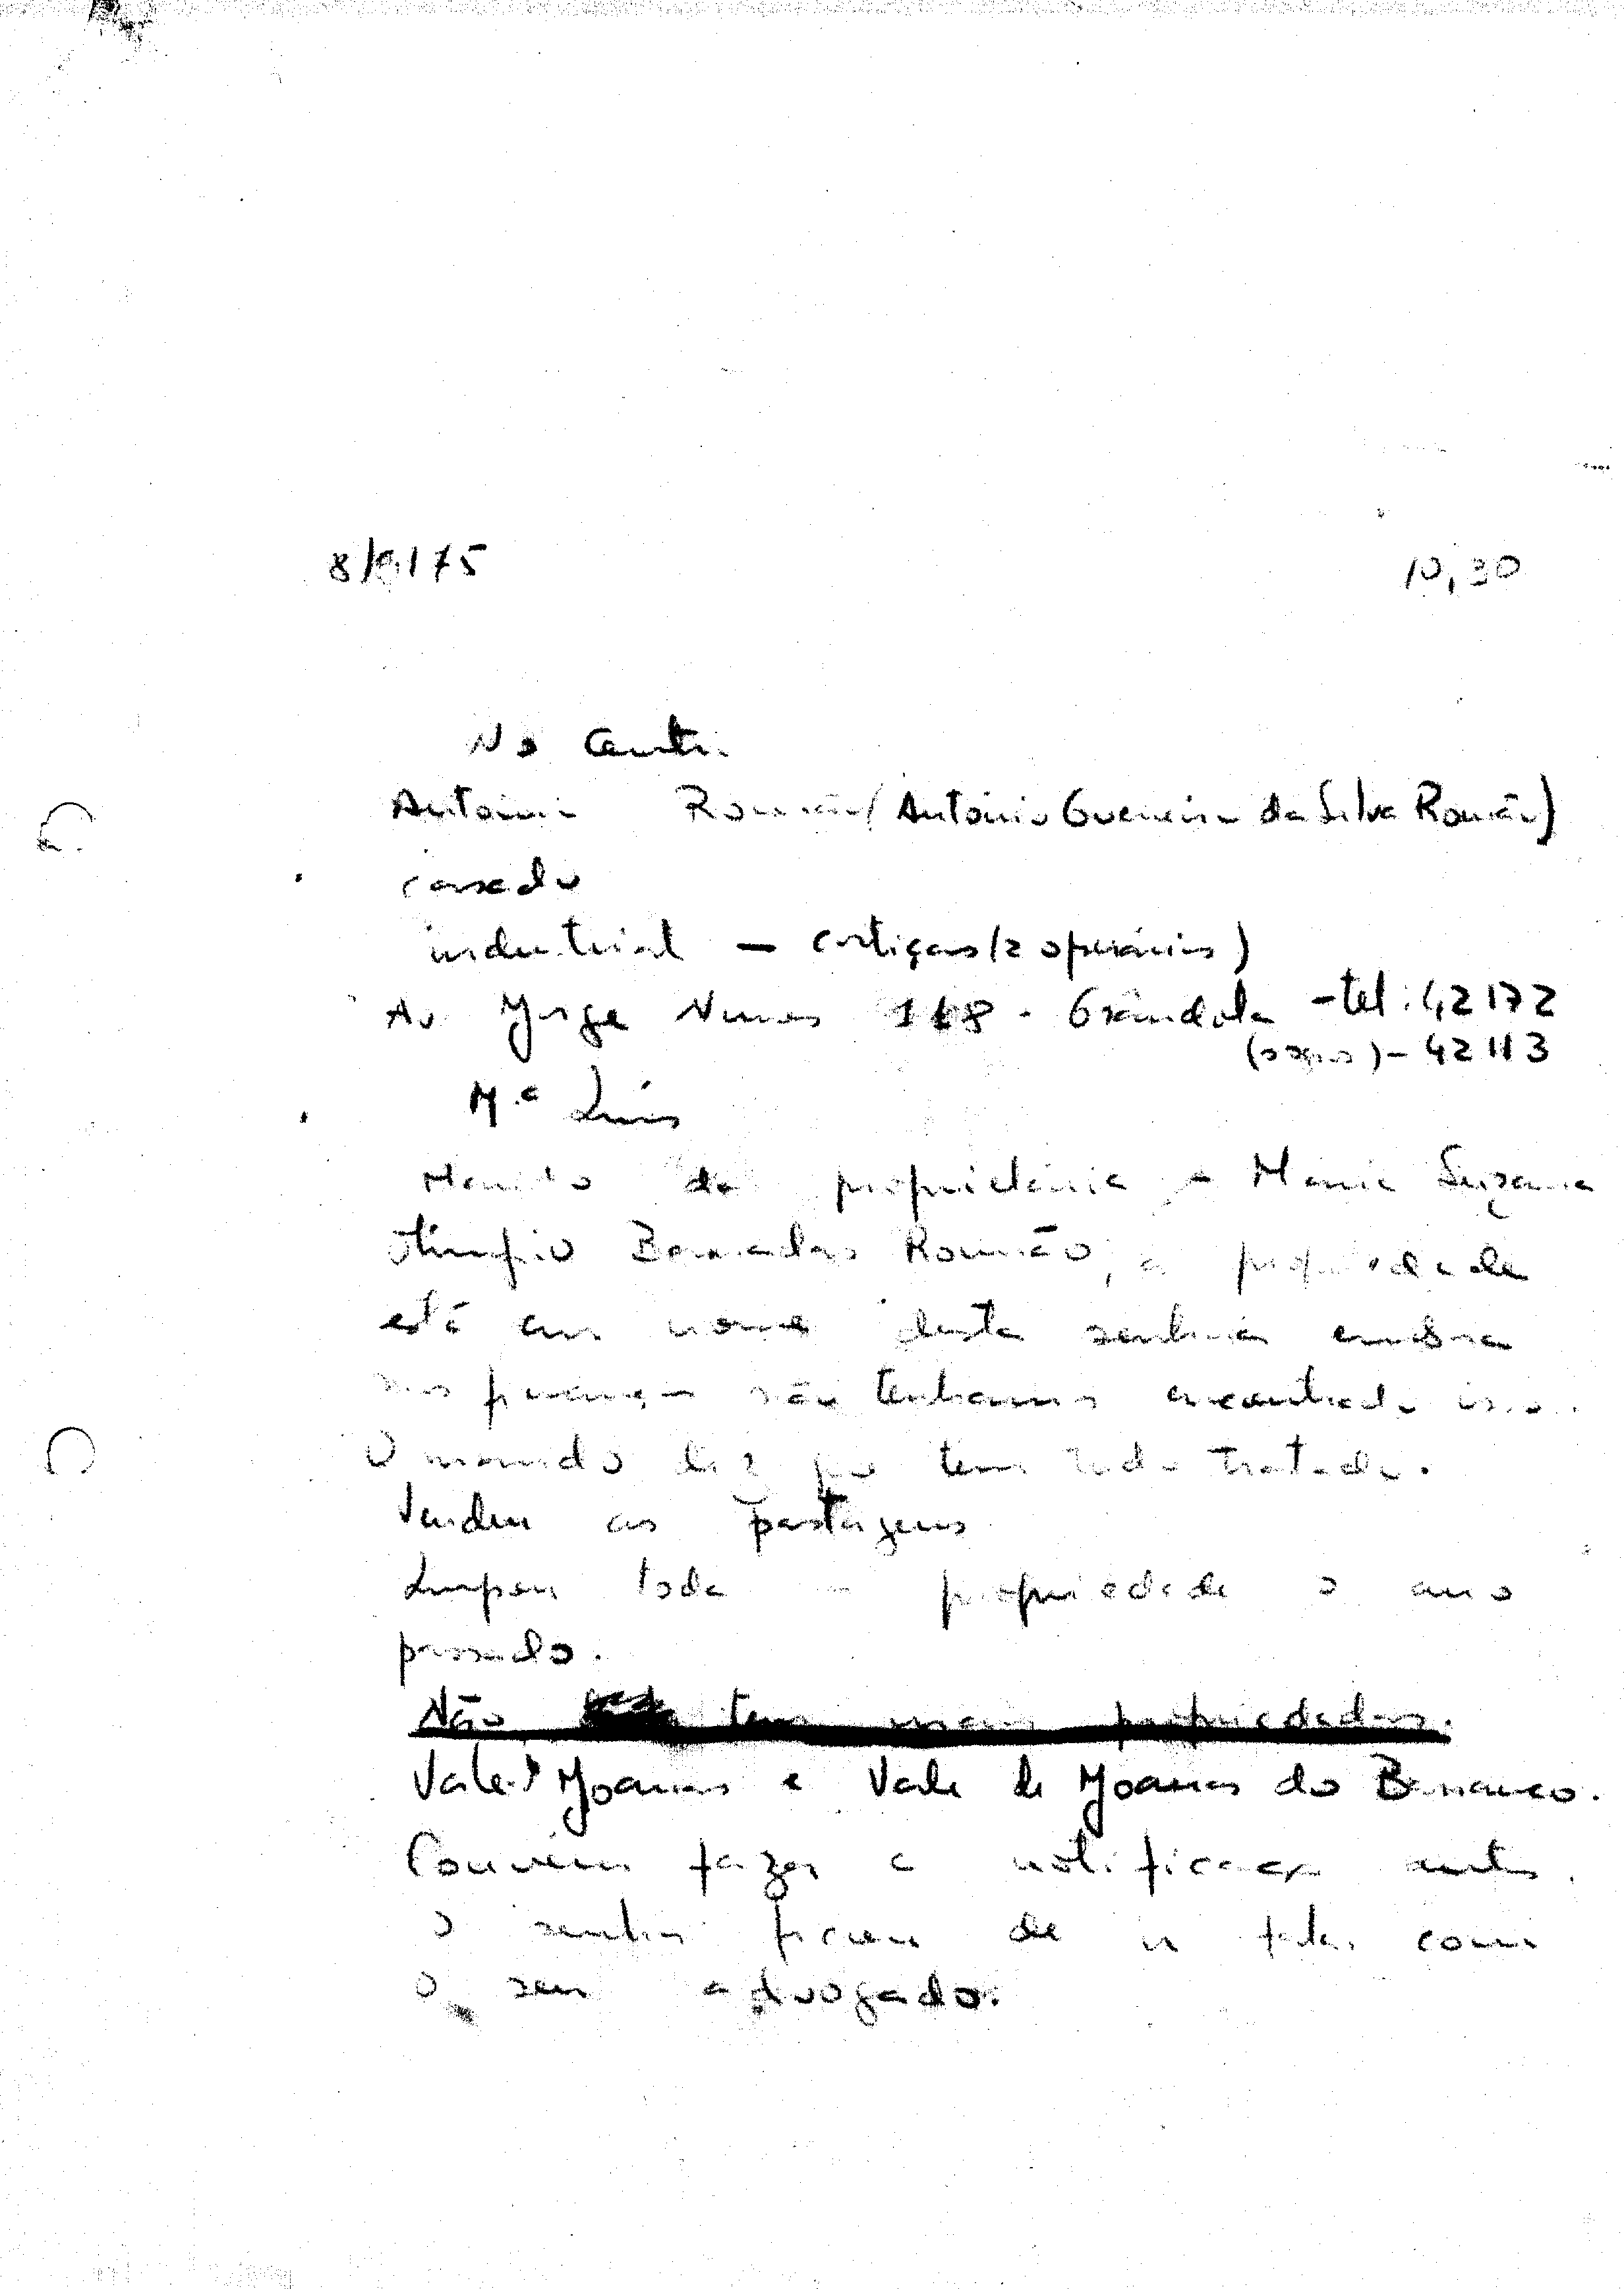 8/9/75 10,30
No Centro
António Romão (António Guerreiro da Silva Romão)
casado
industrial — cortiças (2 operários)
Av Jorge Nunes 118 - Grândola - tel: 42172
- 42113
M.ª Luís
Marido da proprietária - Maria Suzana
Olímpio Barradas Romão, a propriedade
está em nome desta senhora embora
nas finanças não tenhamos encontrado isso.
O marido diz que tem tudo tratado.
Vendeu as pastagens
Limpou toda a propriedade o ano
passado.
Não tem mais propriedades.
Vale d'Joanas e Vale de Joanas do Barranco.
Convém fazer a notificação antes.
O senhor ficou de ir falar com
o seu advogado.